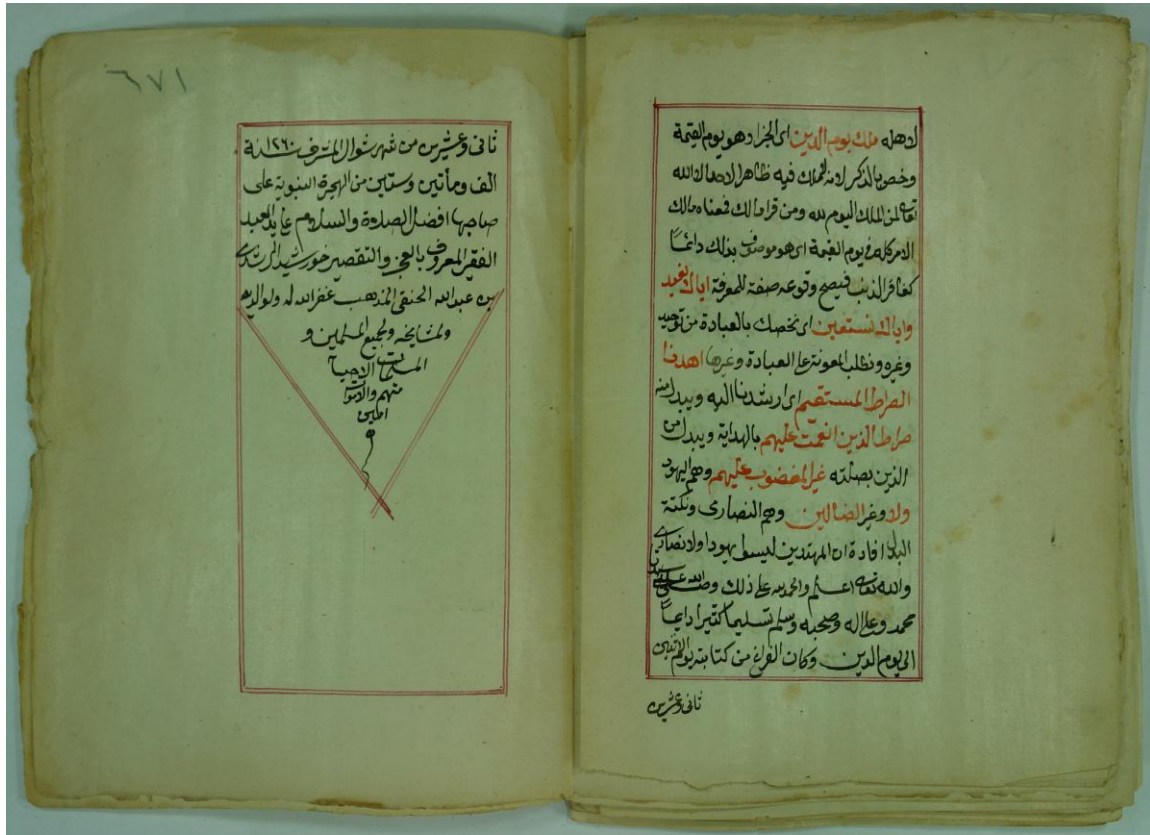 لاهله ملك يوم الدين اى الجزا وهو يوم القيمة
وخص بالذكر لانه لاملك فيه ظاهرا لاحد الا لله
تعالى لمن الملك اليوم لله ومن قرا مالك فمعناه مالك
الامر كله فى يوم القيمة اى هو موصوف بذلك دائما
كغافر الذنب فيصح وقوعه صفة للمعرفة اياك نعبد
واياك نستعين اى نخصك بالعبادة من توحيد
وغيره ونطلب المعونة على العبادة وغيرها اهدنا
الصراط المستقيم اى ارشدنا اليه ويبدل منه
صراط الذين انعمت عليهم بالهداية ويبدل من
الذين بصلته غير المغضوب عليهم وهم اليهود
ولا وغير الضالين وهم النصارى ونكتة
البدل افادة ان المهتدين ليسوا يهودا ولا نصارى
والله تعالى اعلم والحمد لله على ذلك وصلى الله على سيدنا
محمد وعلى اله وصحبه وسلم تسليما كثيرا دايما
الى يوم الدين وكان الفراغ من كتابته يوم الاثنين
ثانى وعشرين
٦٧١
ثانى وعشرين من شهر شوال المشرف سنة ١٢٦٠
الف ومأتين وستين من الهجرة النبوية على
صاحبها افضل الصلاة والسلام على يد العبد
الفقير المعروف بالعجز والتقصير خورشيد الرشدى
بن عبدالله الحنفى المذهب غفر الله له ولوالديه
ولمشايخه ولجميع المسلمين و
المسلمات الاحيا
منهم والاموات
امين